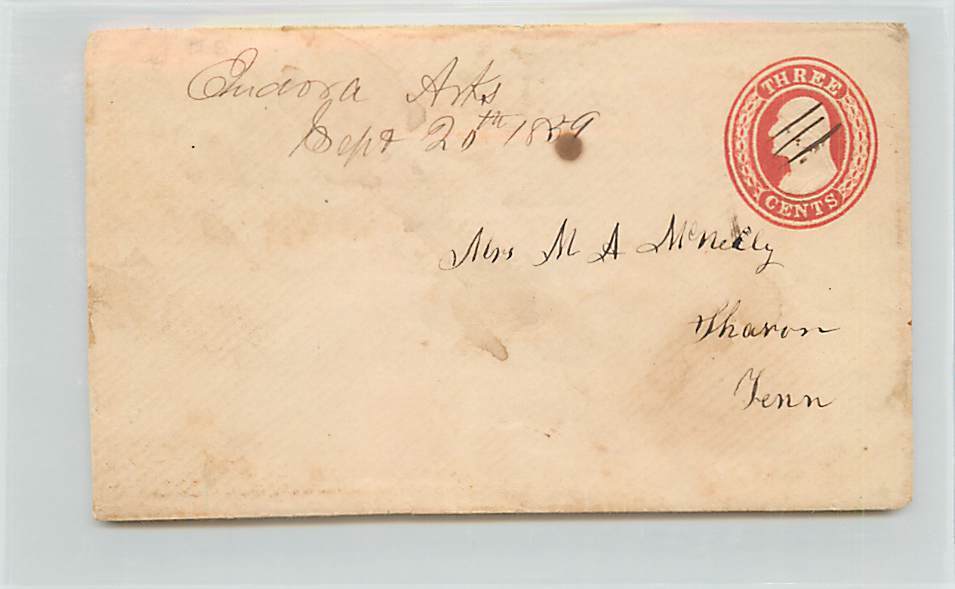 Eudora Arks
Sept 20th 1859
THREE
CENTS
Mrs M A McNeely
Sharon
Tenn